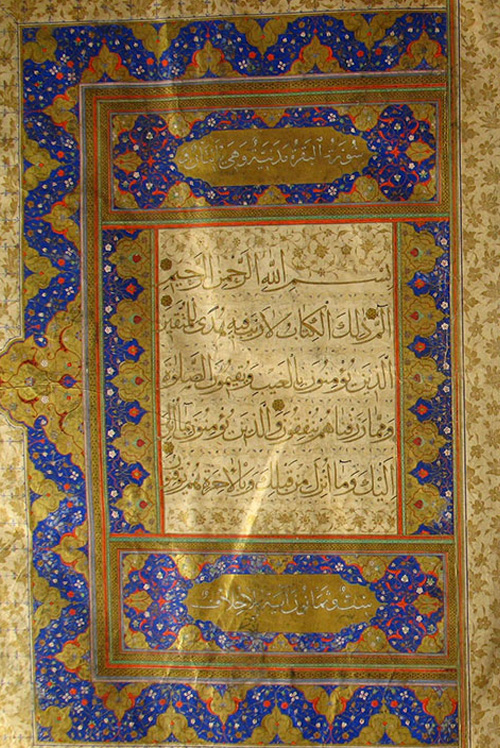 سورة البقرة مدنية وهي مائتان و
بسم الله الرحمن الرحيم
الٓمٓ ذلك الكتاب لا ريب فيه هدى للمتقين
الذين يؤمنون بالغيب ويقيمون الصلوة
ومما رزقناهم ينفقون والذين يؤمنون بما انزل
اليك وما انزل من قبلك وبالاخرة هم يوقنون
ست وثمانون آية بلا خلاف